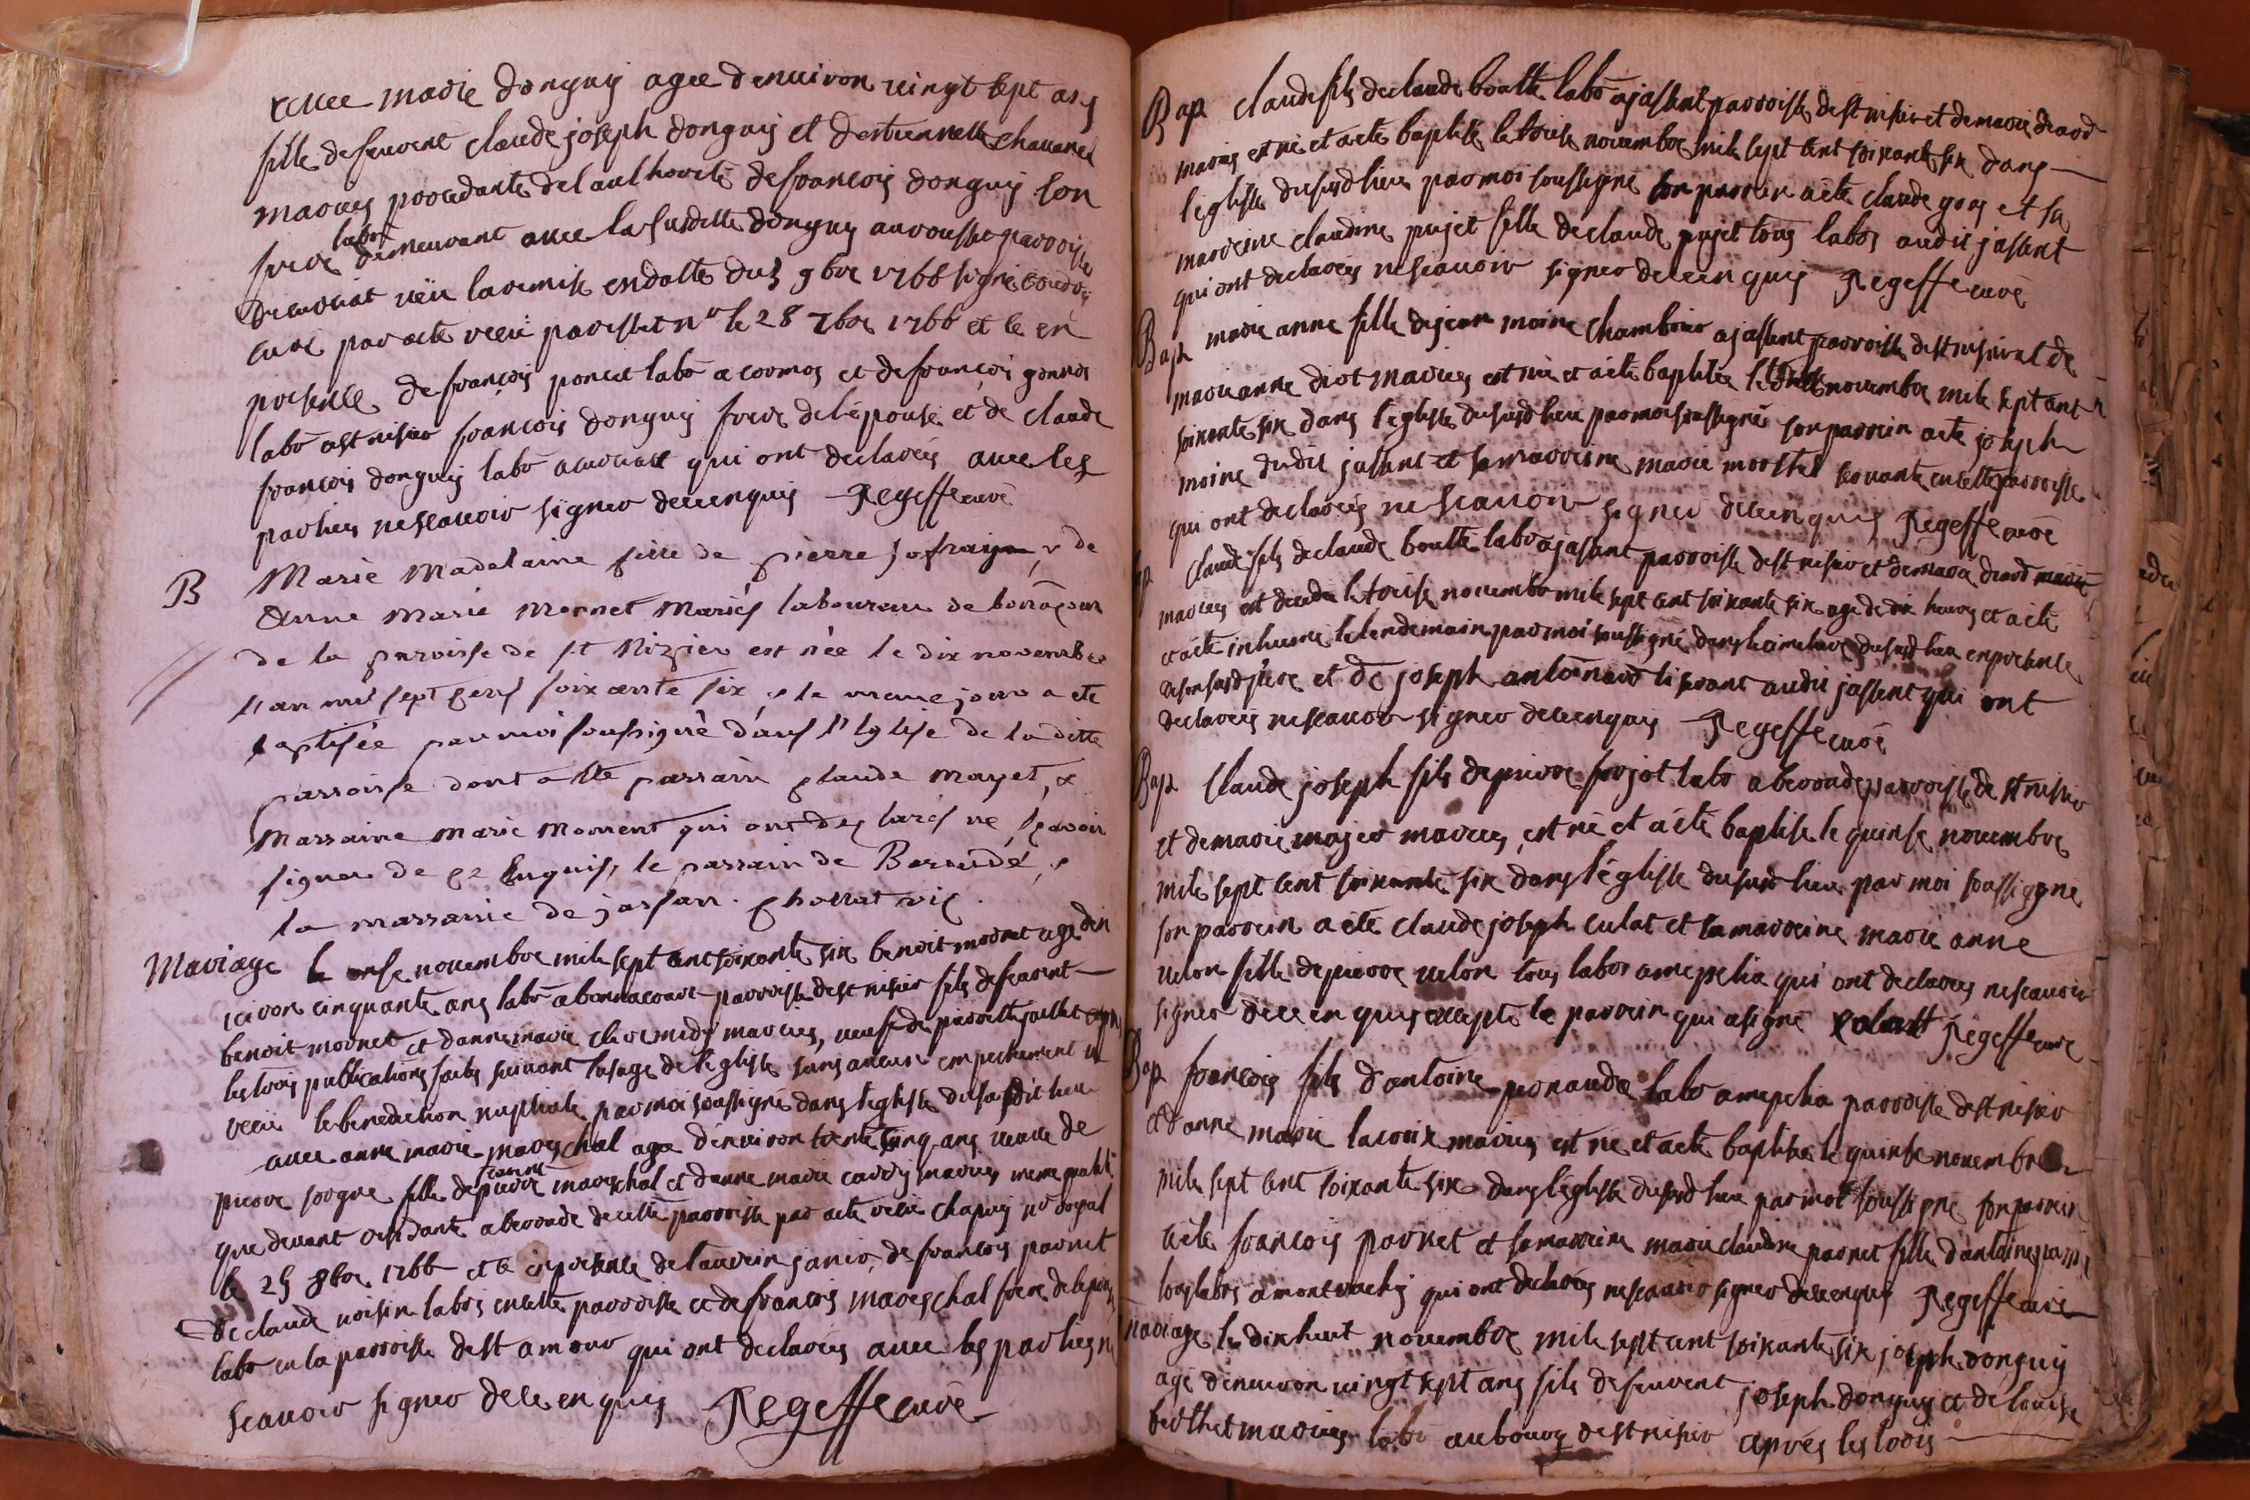 avec marie donguy agee denuiron vingt sept ans
fille defeuvent claude joseph donguy et destiennette chauanel
maries procedante delauthorité defrancois donguy son
frere labor demeurant avec la susditte donguy au rousset parroisse
decuusiat veüe laremise endatte du 5 9bre 1766 signé
curé par acte receü parvesset nre le 28 7bre 1766 et le en
presence defrançois poncet labō a cormos et defrançois gonnos
labō a st nisier françois donguy frere delépouse et de claude
francois donguy labō acuusiat qui ont declarés avec les
parties nescavoir signer decenquis Regeffe curé
B Marie Madelaine fille de pierre Jofray, & de
Anne Marie Mornet Mariés laboureurs de bonacour
de la paroisse de st Nizier est née le dix novembre
l'an mil sept cens soixante six, & le meme jour a eté
baptisée par moi soussigné dans l'Eglise de la ditte
parroisse dont a été parrain claude Mayet, &
Marraine Marie Moment qui ont declarés ne sçavoir
signer de ce enquis, le parrain de Beraudé, &
la marraine de jassan. Chossat vic.
Mariage Le onse novembre mile sept cent soixante six benoit mornet agé den
viron cinquante ans labō abonnacourt parroisse dest nisier fils defeavent
benoit mornet et danne marie cleremidy maries, veuf de pierrette jaillet après
les trois publications faites suivant lusage de l'eglisse sans aucun empechement ont
receü le benediction nuptiale par moi soussigné dans leglisse du susdit lieu
avec anne marie mareschal agée denviron trente cinq ans veuve de
pierre sorgne fille de pierre mareschal et danne marie cardy maries meme qualité
que devant residante aberoude decette parroisse par acte receü chapuy nre royal
le 25 8bre 1766 et le enpresence delaurein janio, de françois parnet
de claude voisin labors encette parroisse et defrancois mareschal frere delepouse
labō en la parroisse dest amour qui ont declarés avec les parties ne
scavoir signer dece enquis Regeffe curé
Bap claude fils declaude boulle labō ajassent parroisse dest nisier et demarie drod
maries est né et aété baptisé le treise novembre mile sept cent soixante six dans
l'eglisse dusujd lieu par moi soussigné son parrein aété claude gras et sa
marreine claudine pujet fille declaude pujet tous labors audit jassent
qui ont declarés nescavoir signer decenquis Regeffe curé
Bap marie anne fille dejean moine chambrier ajassent parroisse dest nisier et de
marie anne drot maries est née et aété baptisée le treise novembre mile sept cent
soixante six dans l'eglisse dusujd lieu par moi soussigné son parrein aété joseph
moine dudit jassent et sa marreine marie mortel servante encette parroisse
qui ont declarés ne scavoir signer decenquis Regeffe curé
Claude fils declaude boulle labō ajassent parroisse dest nisier et demarie drod
maries est decedé le treise novembre mile sept cent soixante six agé de dix heures et aété
et aété inhumé le lendemain par moi soussigné dans le cimetiere dusujd lieu enpresence
deson susd père et de joseph antoinard tisserant audit jassent qui ont
declarés nescavoir signer decenquis Regeffe curé
Bap Claude joseph fils depierre forjot labō aberoude parroisse de st nisier
et demarie majeo maries, est né et aété baptisé le quinse novembre
mile sept cent soixante six dans l'église dusujd lieu par moi soussigné
son parrein aété claude joseph culat et sa marreine marie anne
velon fille depierre velon tous labors amepelia qui ont declarés nescavoir
signer dece enquis excepté le parrein qui asigné culat Regeffe curé
Bap françois fils d'antoine peraude labō amepelia parroisse dest nisier
et d'anne marie lacroix maries est né et aété baptisé le quinse novembre
mile sept cent soixante six dans l'eglisse dusujd lieu par moi soussigné son parrein
aété françois parnet et sa marreine marie claudine parnet fille dantoine parnet
tous labors amontrachy qui ont declarés nescavoir signer decenquis Regeffe curé
mariage le dix huit novembre mile sept cent soixante six joseph donguy
agé denuiron vingt sept ans fils defeuvent joseph donguy et de louise
berthet maries labō au bourg dest nisier après les trois